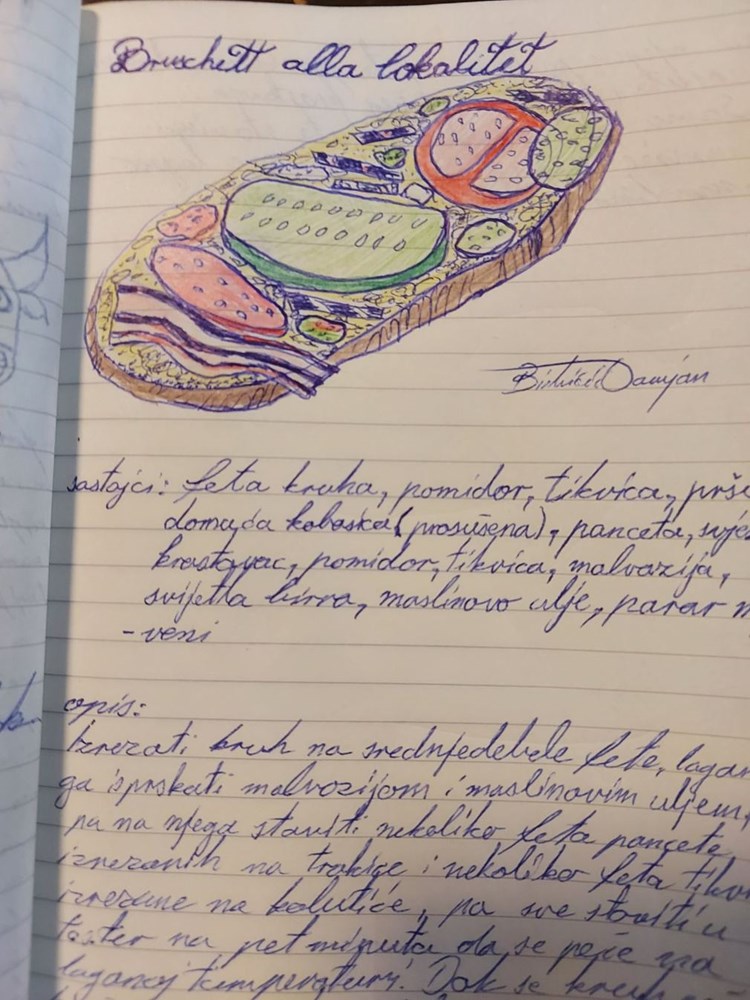 Bruschett alla lokalitet
Damjan
sastojci: feta kruha, pomidor, tikvica, prš
domaća kobaska (prosušena), panceta, svje
krastavac, pomidor, tikvica, malvazija,
svijetla birra, maslinovo ulje, papar m
-veni
opis:
Izrezati kruh na srednjedebele fete, lagan
ga isprskati malvazijom i maslinovim uljem,
pa na njega staviti nekoliko feta pancete
izrezanih na trakice i nekoliko feta tikv
izrezane na kolutiće, pa sve staviti u
toster na pet minuta da se peče na
laganoj temperaturi. Dok se kruh